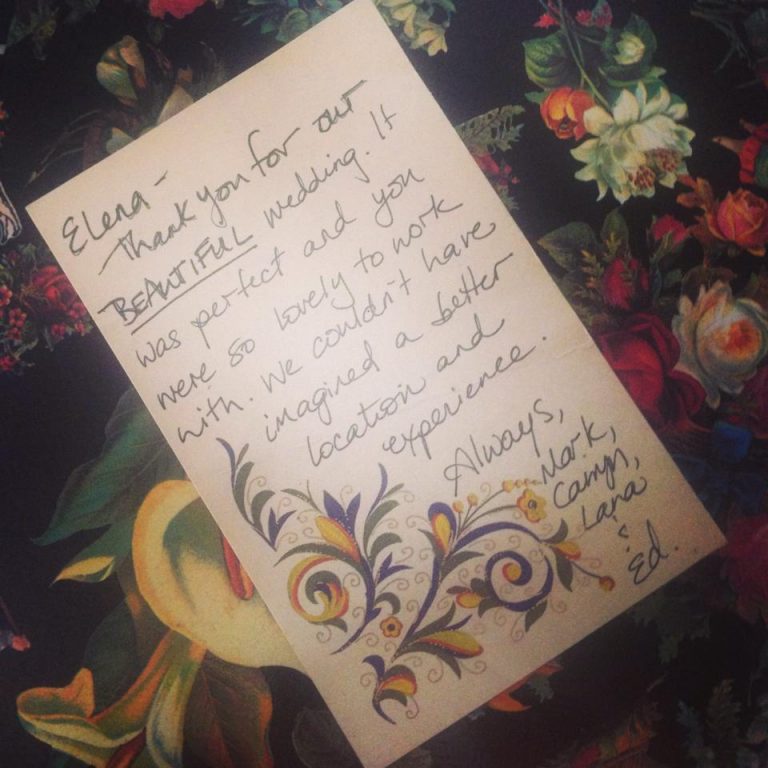 Elena-
Thank you for our
BEAUTIFUL wedding. It
was perfect and you
were so lovely to work
with. We couldn't have
imagined a better
location and
experience.
Always,
Mark,
Camyn,
Lana
& Ed.